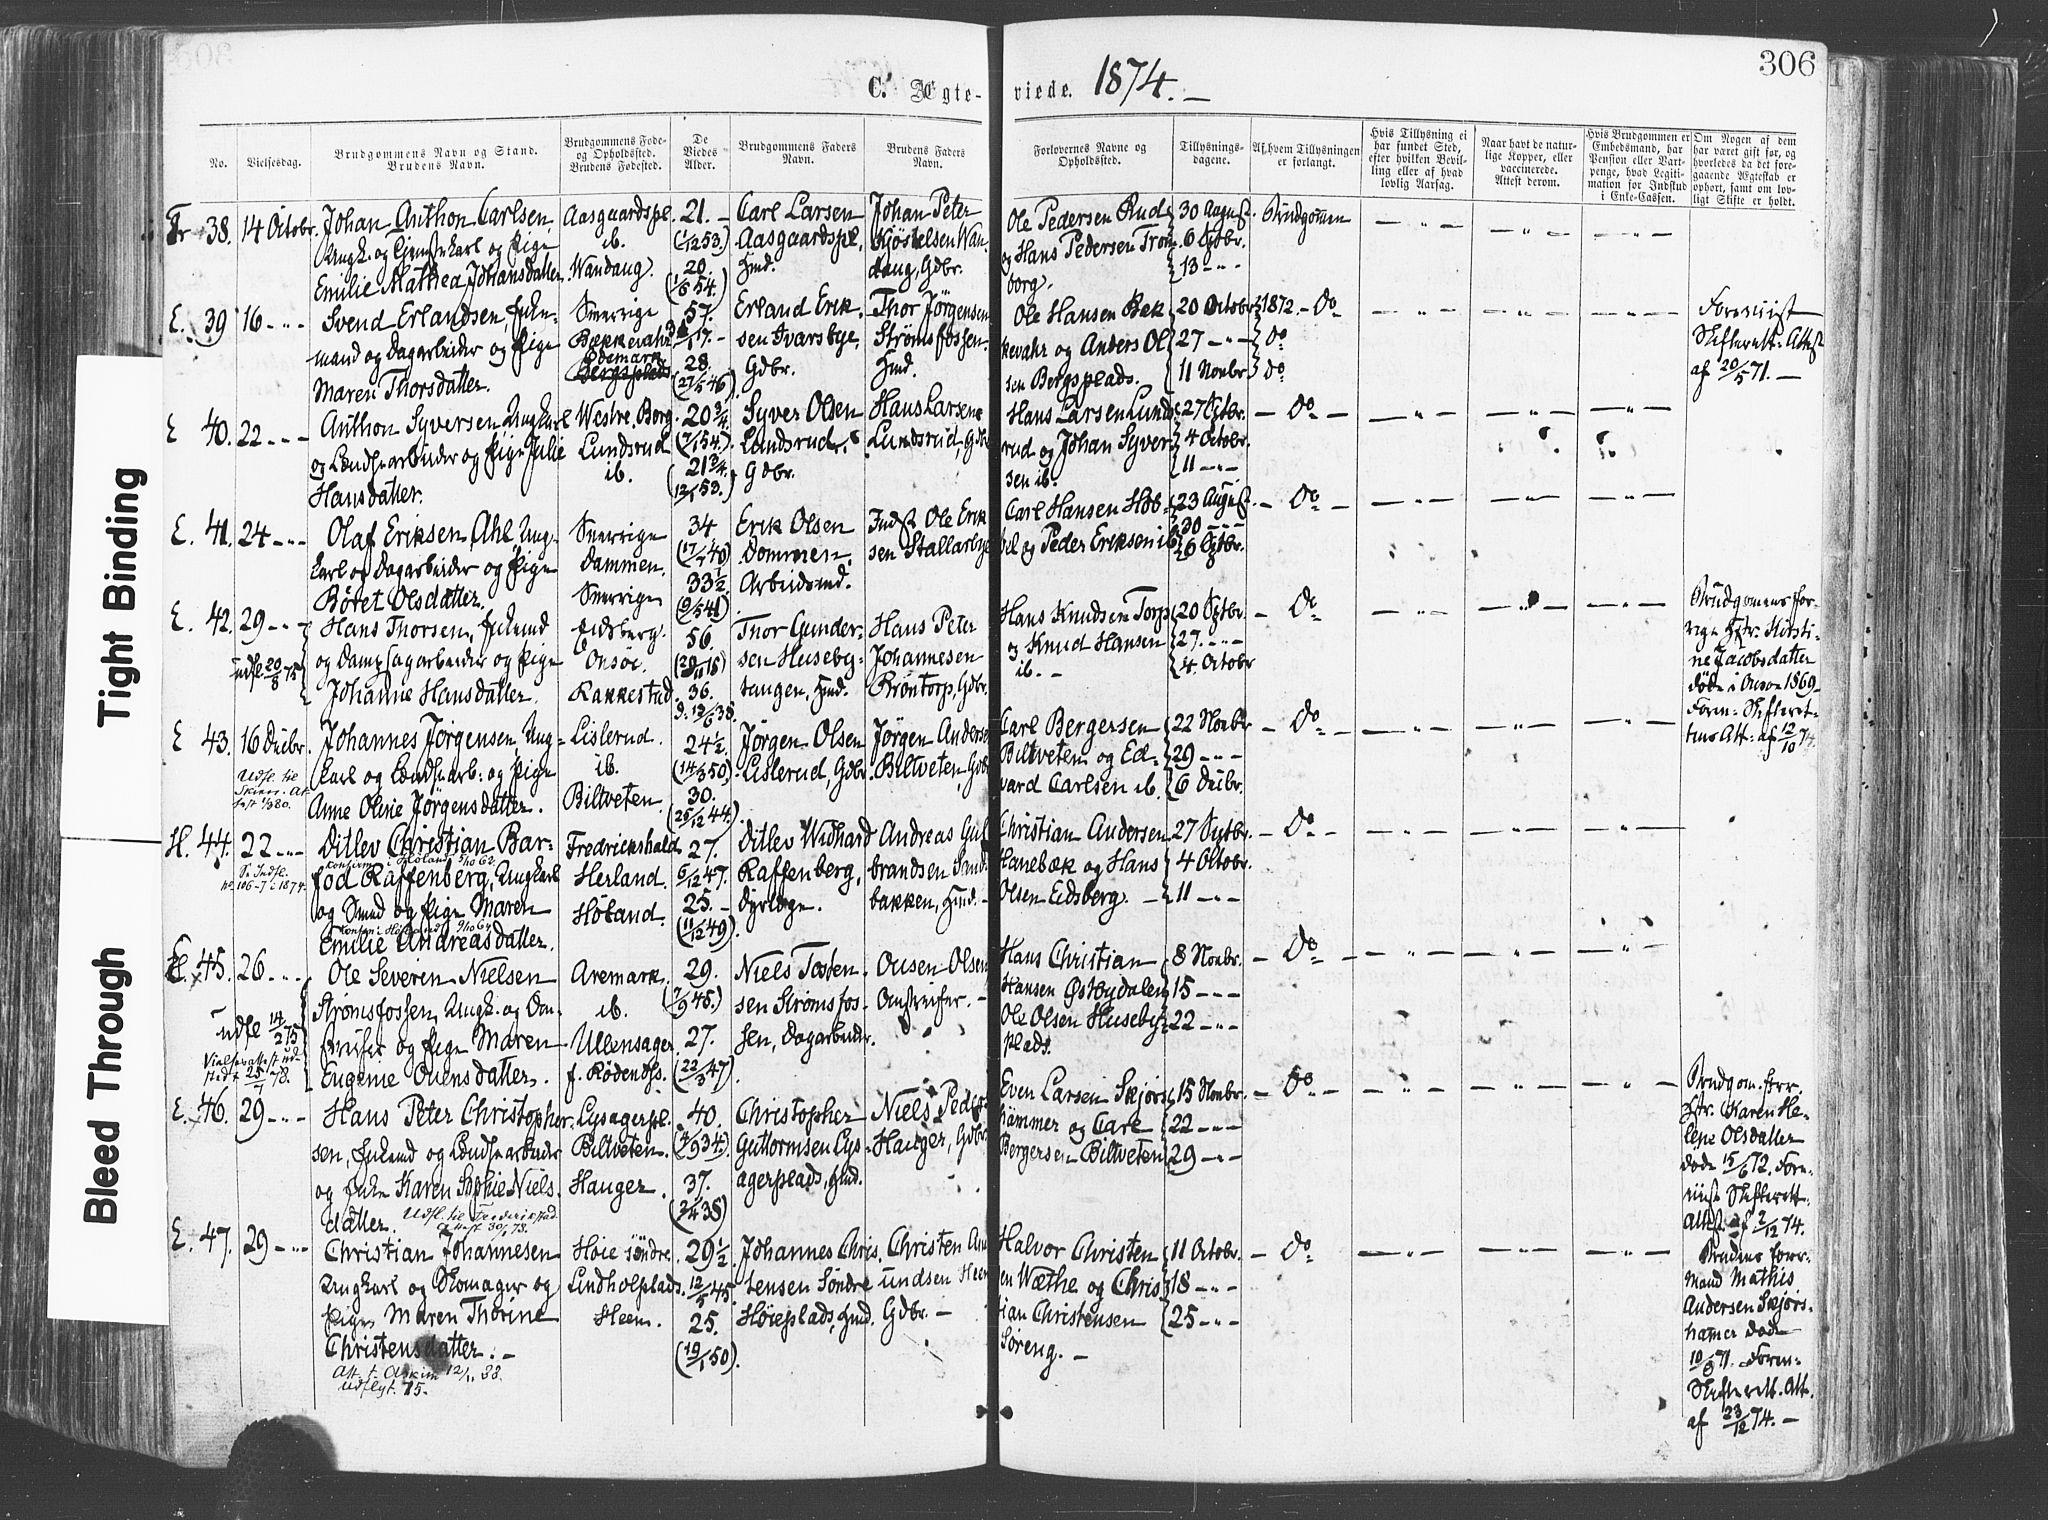 306
C. Ægte-viede. 1874. —
No.
Vielsesdag.
Brudgommens Navn og Stand.
Brudens Navn.
Brudgommens Føde-
og Opholdssted.
Brudens Fødested.
De
Viedes
Alder.
Brudgommens Faders
Navn.
Brudens Faders
Navn.
Forlovernes Navne og
Opholdssted.
Tillysnings-
dagene.
Af hvem Tillysningen
er forlangt.
Hvis Tillysning ei
har fundet Sted,
efter hvilken Bevil-
ling eller af hvad
lovlig Aarsag.
Naar havt de natur-
lige Kopper, eller
vaccinerede.
Attest derom.
Hvis Brudgommen er
Embedsmand, har
Pension eller Vart-
penge, hvad Legiti-
mation for Indskud
i Enke-Cassen.
Om Nogen af dem
har været gift før, og
hvorledes da det fore-
gaaende Ægteskab er
ophørt, samt om lov-
ligt Skifte er holdt.
38. 14 Octobr.
Johan Anthon Carlsen,
Ungk. og og Pige
Emilie Mathea Johansdatter
Aasgaardspl.
ib.
Wandaug.
21. —
(1/12 53)
20.
(1/6 54.)
Carl Larsen
Aasgaardspl.
Hmd.
Johan Peter
Kjöstelsen Wan-
daug, Gdbr.
Ole Pedersen Rud
og Hans Pedersen Trom-
borg.
30 August
6 Sptbr.
13 — " —
Brudgommen
E. 39 16 — " —
Svend Erlandsen, Enke-
mand og Dagarbeider og Pige
Maren Thorsdatter.
Sverrige
Bækkevahr
Ødemark
Bergsplads
57.
17. —
28.
(27/5 46)
Erland Erik-
sen Ivarsbye,
Gdbr.
Thor Jørgensen
Strømsfossen-
Hmd.
Ole Hansen Bæk-
kevahr og Anders Ol-
sen Bergsplads.
20 Octobr 1872. — Do
27 — " — Do
11 Novbr Do
Forevist
Skifterett. Attest
af 20/5 71. —
E 40. 22 — " —
Anthon Syversen, Ungkarl
og Løndsarbeider og Pige Julie
Hansdatter.
Westre Borg.
Lundsrud
ib.
20 3/4
(7/1 54.)
21 3/4
(12/1 53.)
Syver Olsen
Landsrud,
Gdbr.
Hans Larsen
Lundsrud, Gdbr
Hans Larsen Lunds-
rud og Johan Syver-
sen ib.
27 Sptbr.
4 Octobr.
11 — " —
— Do —
E. 41. 24 — " —
Olaf Eriksen Ahl, Ung-
karl og Dagarbeider og Pige
Böret Olsdatter.
Sverrige
Dammen.
Sverrige
34
(17/7 40)
33 1/2
(9/5 41)
Erik Olsen
Dommen,
Arbeidsmd.
Indst Ole Erik-
sen Stallarbye
Carl Hansen Høb-
bel og Peder Eriksen ib
23 August
30 — " —
6 Sptbr.
— Do —
E. 42. 29 — " —
udfl. 20/8 75
Hans Thorsen, Enkemd
og Dampsagarbeider og Pige
Johanne Hansdatter.
Eidsberg.
Onsöe.
Rakkestad
56
(20/11 18)
36.
d. 12/6 38.
Thor Gunder-
sen Huseby-
tangen, Hmd.
Hans Peter
Johannesen
Brøntorp, Gdbr.
Hans Knudsen Torp
og Knud Hansen
ib. —
20 Sptbr.
27. — " —
4 Octobr
— Do —
Brudgomens for-
rige Hstr. Kirsti-
ne Jacobsdatter
døde i Onsøe 1869.
Forev. Skifteret-
tens Att: af 12/10 74.
E 43. 16 Decbr.
Udfl. til
Skien. At-
test 1/3 80.
Johannes Jørgensen, Ung-
karl og Løndsarb: og Pige
Anne Oline Jørgensdatter.
Lislerud.
ib.
Biltveten.
24 1/2
(14/3 50)
30.
(25/12 44.)
Jørgen Olsen
Lislerud, Gdbr.
Jørgen Andersen
Biltveten, Gdbr
Carl Bergersen
Biltveten og Ed-
vard Carlsen ib.
22 Novbr
29 — " —
6 Decbr.
— Do —
H. 44. 22 — " —
S. Indfl.
No. 106-7 i 1874.
Ditlev Christian Bar-
confirm. i Høland 9/10 62.
fod Raffenberg, Ungkarl
og Smed og Pige Maren
Confir. i Høland 9/10 64
Emilie Andreasdatter.
Fredrikshald
Herland.
Høland.
27.
6/12 47.
25. —
(11/12 49)
Ditlev Widhard
Raffenberg,
Dyrlæge.
Andreas Gul-
brandsen Sand-
bakken, Hmd. —
Christian Andersen
Hanebæk og Hans
Olsen Eidsberg. —
27 Sptbr.
4 Octobr.
11 — " —
— Do —
E. 45. 26 — " —
udfl 14/2 75
Vielsesattest ud-
sted. 25/7 78.
Ole Severin Nielsen
Strømsfossen, Ungk. og
og Pige Maren
Eugenie Ouensdatter.
Aremark.
ib.
Ullensager
f. Rødenss.
29.
(7/9 45.)
27.
(22/3 47)
Niels Tosten-
sen Strømsfos-
sen, Dagarbeider.
Ousen Olsen
Omstreifer. —
Hans Christian
Hansen Østbydalen
Ole Olsen Huseby-
plads.
8 Novbr.
15 — " —
22 — " —
— Do —
E. 46. 29 — " —
Hans Peter Christopher-
sen, Enkemd og Løndsarbeider
og Enke Karen Sophie Niels-
datter.
Udfl. til Frederikstad.
Attest 30/1 78.
Lysagerpl.
Biltveten.
Hauger.
40.
(7/9 34.)
37.
(2/4 38)
Christopher
Guttormsen Lys-
agerplads, Hmd.
Niels Peder-
Hauger, Gdbr.
Even Larsen Skjørs-
hammer og Carl
Bergersen Biltveten
15 Novbr.
22 — " —
29 — " —
— Do —
Brudgom. forr.
Hstr. Karen He-
lene Olsdatter
døde 15/6 72. Fore-
viist Skifterett.
Attest af 2/12 74.
E. 47. 29 — " —
Christian Johannesen
Ungkarl og Skomager og
Pige Maren Thorine
Christensdatter. —
Att. t. Askim 12/11 83.
Udflyt. 75.
Høie søndre.
Lindholplads.
Heem.
29 1/2
12/5 45.
25.
(19/1 50).
Johannes Chris-
tensen Søndre
Høieplads, Hmd.
Christen Am-
undsen Heem
Gdbr. —
Halvor Christen-
sen Wæthe og Chris-
tian Christensen
Søreng. —
11 Octobr.
18 — " —
25 — " —
— Do —
Brudens forr.
Mand Mathis
Andersen Skjørs-
hamer døde
10/8 71. Forev-
Skifterett. Att.
af 23/12 74. —
Tight Binding
Bleed Through